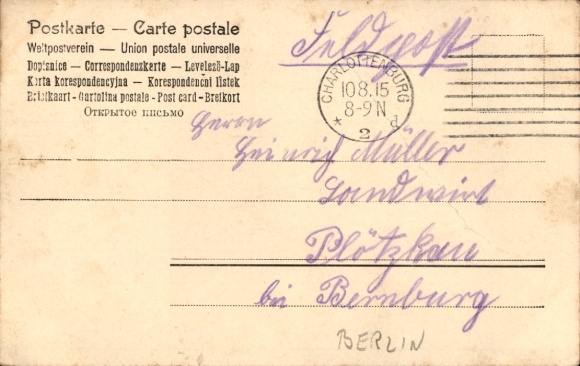 Postkarte — Carte postale
Weltpostverein — Union postale universelle
Dopisnice — Correspondenzkarte — Levelező-Lap
Karta korespondencyjna — Korespondenčni listek
Briefkaart - Cartolina postale - Post card - Brefkort
Открытое письмо
Feldpost
CHARLOTTENBURG
10.8.15
8-9 N
* 2 d
Herrn
Heinrich Müller
Landwirt
Plötzkau
bei Bernburg
BERLIN